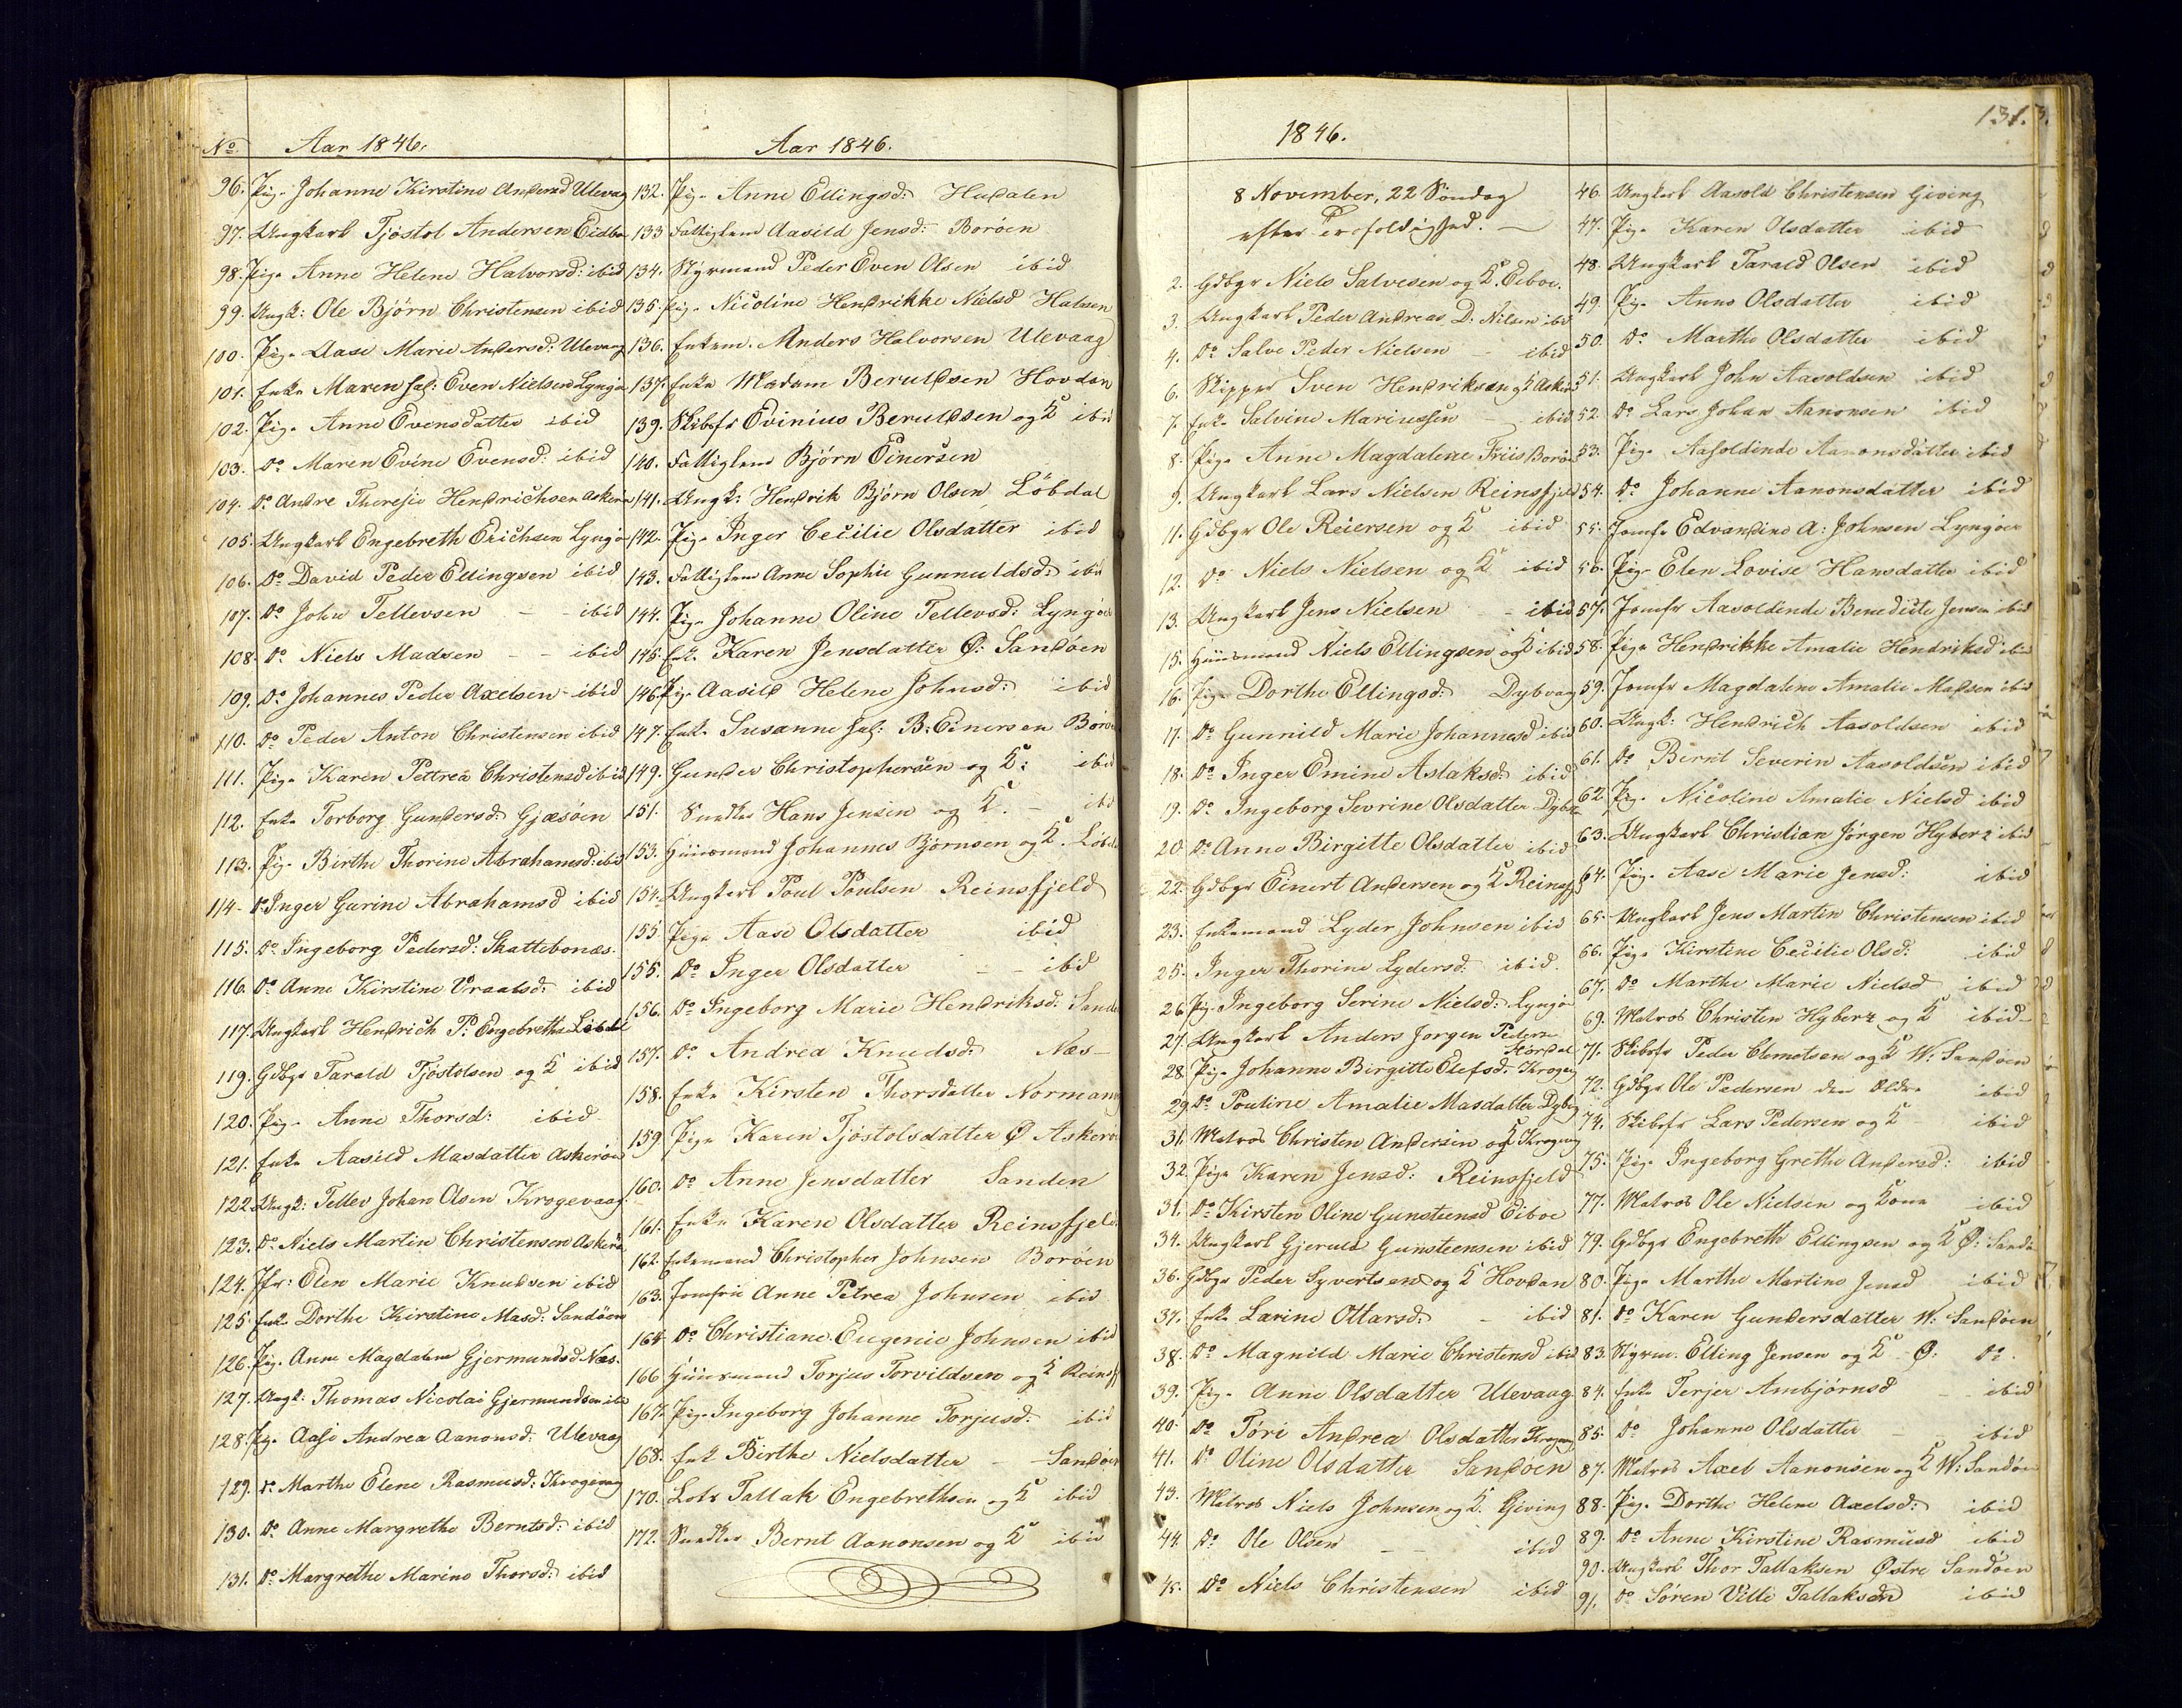 No Aar 1846.
96. Pig. Johanne Kirstine Andersd Ulevag
97. Ungkarl Tjöstol Andersen Eidbo
98. Pige Anne Helene Halvorsd: ibid
99. Ungk: Ole Björn Christensen ibid
100. Pige Aase Marie Andersd: Ulevaag
101. Enke Maren sal: Even Nielsen Lyngö
102. Pige Anne Evensdatter ibid
103. Do Maren Evine Evensd: ibid
104. Do Andre Theresie Hendrichsen Askerö
105. Ungkarl Engebreth Erichsen Lyngö
106. Do David Peder Ellingsen ibid
107. Do John Tellevsen - - ibid
108. Do Niels Madsen - - ibid
109. Do Johannes Peder Axelsen - ibid
110. Do Peder Anton Christensen ibid
111. Pige Karen Pettrea Christensd ibid
112. Enke Torborg Gundersd: Gjæsöen
113. Pig. Birthe Thorine Abrahamsd: ibid
114. Do Inger Gurine Abrahamsd ibid
115. Do Ingeborg Pedersd: Skattebonæs.
116. Do Anne Kirstine Vraalsd: ibid
117. Ungkarl Hendrich P: Engebrethse Löbdal
119. Gdbgr Tarald Tjöstolsen og K ibid
120. Pige Anne Thorsd: ibid
121. Enke Aasild Masdatter Askeröen
122. Ungk: Tellev Johan Olsen Krogevaag
123. Do Niels Martin Christensen Askerö
124. Jfr: Elen Marie Knudsen ibid
125. Enke Dorthe Kirstine Masd: Sandöen
126. Pig. Anne Magdalene Gjermundsd Næs.
127. Ungk: Thomas Nicolai Gjermundsen ibid
128. Pig. Aase Andrea Aanonsd: Ulevaag
129. Do Marthe Elene Rasmusd: Krogevag
130. Do Anne Margrethe Berntsd: ibid
131. Do Margrethe Marine Thorsd: ibid
Aar 1846.
132. Pige Anne Ellingsd: Hudalen
133 Fattiglem Aasild Jensd: Boröen
134. Styrmand Peder Even Olsen ibid
135. Pige Nicoline Hendrikke Nielsd Halsen
136. Enkem. Anders Halvorsen Ulevaag
137. Enke Madam Beruldsen Hovdan
139. Skibsfr Evinius Beruldsen og K ibid
140. Fattiglem Björn Einersen
141. Ungk: Hendrik Björn Olsen Löbdal
142. Pige Inger Cecilie Olsdatter ibid
143. Fattiglem Anne Sophie Gunnuldsd: ibid
144. Pige Johanne Oline Tellevsd: Lyngöe
145. Enk. Karen Jensdatter Ø: Sandöen
146. Pige Aasild Helene Johnsd: ibid
147. Enke Susanne sal: B: Einersen Boröe
149. Gunder Christophersen og K: ibid
151. Snedker Hans Jensen og K. - ibid
153. Huusmand Johannes Björnsen og K. Löbd
154. Ungkarl Poul Poulsen Reinsfjeld
155 Pige Aase Olsdatter ibid
155. Do Inger Olsdatter - - ibid
156. Do Ingeborg Marie Hendriksd: Sande
157. Do Andrea Knudsd: Næs -
158. Enke Kirsten Thorsdatter Normang
159 Pige Karen Tjöstolsdatter Ø Askerö
160. Do Anne Jensdatter Sanden
161. Enke Karen Olsdatter Reinsfjeld
162. Enkemand Christopher Johnsen Boröen
163. Jomfrie Anne Petrea Johnsen ibid
164 Do Christiane Eugenie Johnsen ibid
166 Huusmand Torjus Torvildsen og K Reinsfj
167. Pige Ingeborg Johanne Torjusd: ibid
168. Enk Birthe Nielsdatter - Sandöen
170. Lots Tallak Engebrethsen og K ibid
172. Snedker Bernt Aanonsen og K ibid
1846.
8 November, 22 Söndag
efter Trefoldighed. -
2. Gdbgr Niels Salvesen og K. Eeboe.
3. Ungkarl Peder Andreas D. Nilsen ibid
4. Do Salve Peder Nielsen - ibid
6. Skipper Sven Hendriksen og K Askerö
7. Enke Salvine Mariussen - ibid
8. Pige Anne Magdalene Friis Boröe
9. Ungkarl Lars Nielsen Reinsfjeld
11. Gdbgr Ole Reiersen og K ibid
12. Do Niels Nielsen og K ibid
13. Ungkarl Jens Nielsen - ibid
15. Huusmand Niels Ellingsen og K ibid
16. Pige Dorthe Ellingsd: Dybvag
17. Do Gunnild Marie Johannesd ibid
18. Do Inger Emine Aslaksd: ibid
19. Do Ingeborg Sevrine Olsdatter Dybv
20. Do Anne Birgitte Olsdatter ibid
22. Gdbgr Einert Andersen og K Reinsfj
23. Enkemand Lyder Johnsen ibid
25. Inger Thorine Lydersd: ibid.
26. Pig. Ingeborg Serine Nielsd: Lyngö
27. Ungkarl Anders Jorgen Peders
28. Pige Johanne Birgitte Olefsd. Krogvag
29. Do Pouline Amalie Masdatter Dybvg
31. Matros Christen Andersen og K Krogvag
32. Pige Karen Jensd: Reinsfjeld
31. Do Kirsten Oline Gunsteensd Eiboe
34. Ungkarl Gjeruld Gunsteensen ibid
36. Gdbgr Peder Syvertsen og K Hovdan
37. Enke Larine Ottarsd: - ibid
38. Do Magnild Marie Christensd ibid
39. Pig. Anne Olsdatter Ulevaag
40. Do Töri Andrea Olsdatter Krogvag
41. Do Oline Olsdatter Sandöen
43. Matros Niels Johnsen og K. Giving
44. Do Ole Olsen - - ibid
45. Do Niels Christensen ibid
131.
46. Ungkarl Aasold Christensen Giving
47. Pige Karen Olsdatter ibid
48. Ungkarl Tarald Olsen ibid
49. Pige Anne Olsdatter ibid
50. Do Marthe Olsdatter ibid
51. Ungkarl John Aasoldsen ibid
52. Do Lars Johan Aanonsen ibid
53. Pige Aasoldinde Aanonsdatter ibid
54. Do Johanne Aanonsdatter ibid
55. Jomfr Edvardine A: Johnsen Lyngöer
56. Pige Elen Lovise Hansdatter ibid
57. Jomfr Aasoldinde Benedicte Jensen ibid
58. Pige Hendrikke Amalie Hendriksd ibid
59. Jomfr Magdalene Amalie Madsen ibid
60. Ungk: Hendrich Aasoldsen ibid
61. Do Bernt Severin Aasoldsen ibid
62. Pige Nicoline Amalie Nielsd ibid
63. Ungkarl Christian Jörgen Hyberz ibid
64. Pige Aase Marie Jensd: ibid
65. Ungkarl Jens Martin Christensen ibid
66. Pige Kirstine Cecilie Olsd: ibid
67. Do Marthe Marie Nielsd ibid
69. Matros Christen Hyberz og K ibid -
71. Skibsfr Peder Clemetsen og K W: Sandöen
72. Gdbgr Ole Pedersen den Ældre ibid
74. Skibsfr Lars Pedersen og K - ibid
75. Pige Ingeborg Grethe Andersd: ibid
77. Matros Ole Nielsen og Kone ibid
79. Gdbgr Engebreth Ellingsen og K Ø: Sandö
80. Pige Marthe Martine Jensd ibid
81. Do Karen Gundersdatter W: Sandöen
83. Styrm. Elling Jensen og K - Ø: Do.
84. Enke Terjer Ambjörnsd - ibid
85. Do Johanne Olsdatter - - ibid
87. Matros Axel Aanonsen og K W: Sandöe
88. Pige Dorthe Helene Axelsd: ibid
89. Do Anne Kirstine Rasmusd ibid
90. Ungkarl Thor Tallaksen Østre Sandöen
91. Do Sören Ville Tallaksen ibid